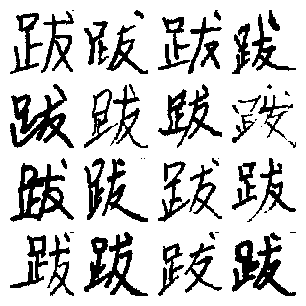 跋跋跋跋
跋跋跋跋
跋跋跋跋
跋跋跋跋